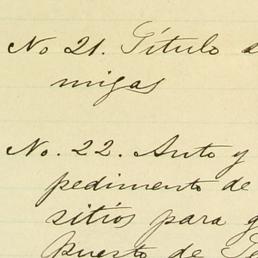 No 21. Título
migas
No. 22. Auto y
pedimento de
sitios para
puesto de